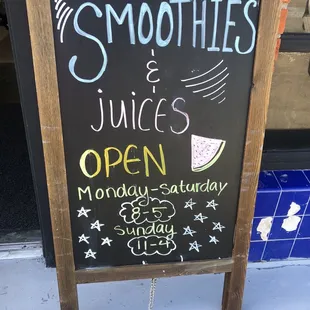 SMOOTHIES
&
JUICES
OPEN
Monday-Saturday
8-5
Sunday
11-4